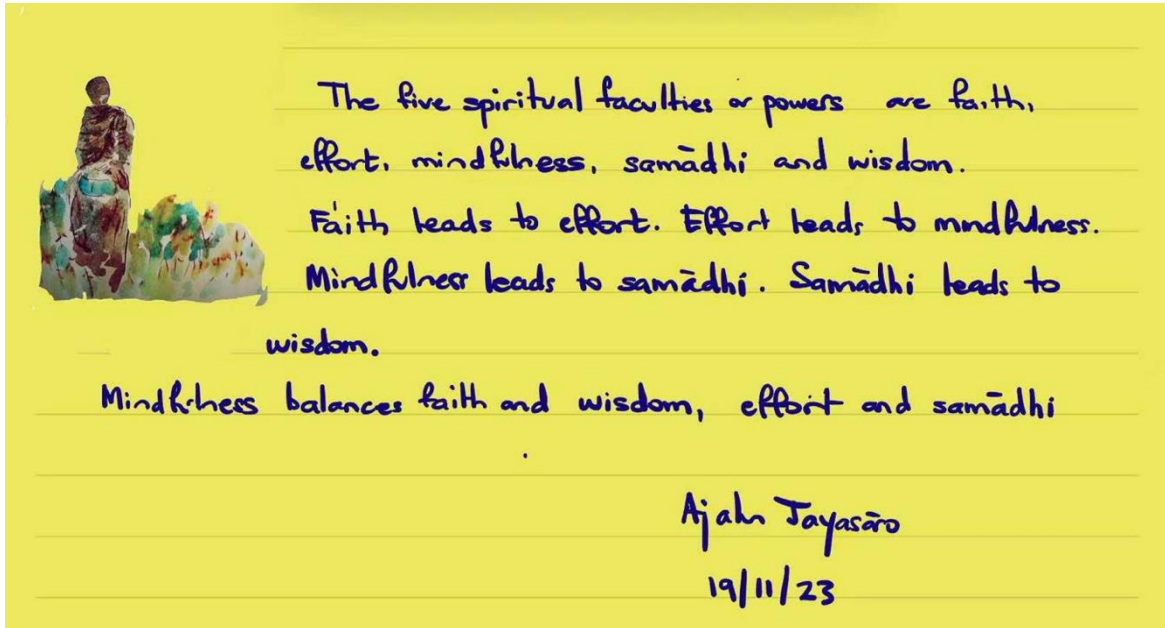 The five spiritual faculties or powers are faith,
effort, mindfulness, samādhi and wisdom.
Faith leads to effort. Effort leads to mindfulness.
Mindfulness leads to samādhi. Samādhi leads to
wisdom.
Mindfulness balances faith and wisdom, effort and samādhi
.
Ajahn Jayasāro
19/11/23